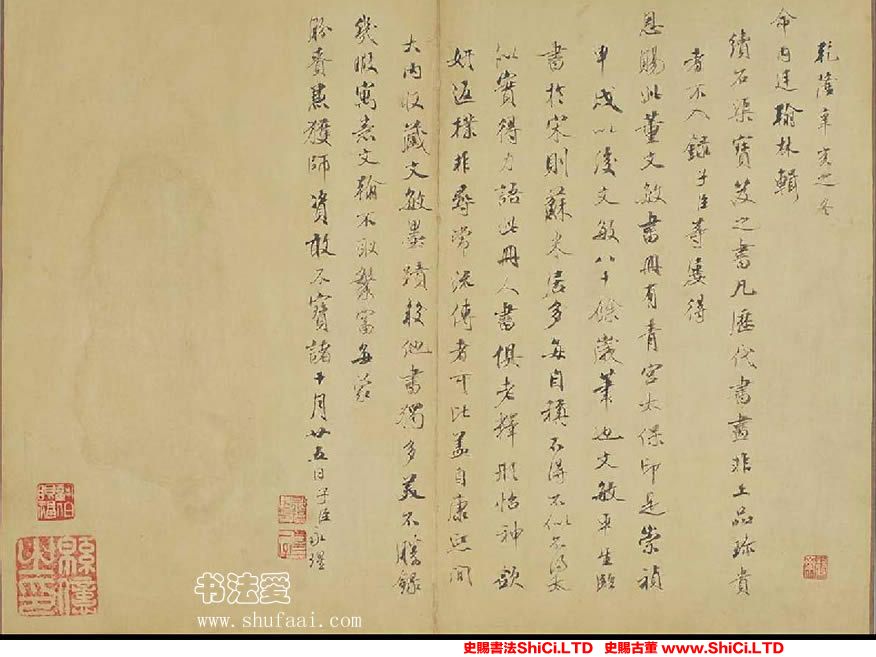 乾隆辛亥之冬
命内廷翰林輯
續石渠寶笈之書凡歷代書畫非上品珍貴
者不入錄子臣等屢得
恩賜此董文敏書冊有青宮太保印是崇禎
甲戌以後文敏八十餘歲筆也文敏平生臨
書於宋則蘇米居多每自稱不得不似不得太
似實得力語此冊人書俱老釋形怡神欲
妍返樸非尋常流傳者可比蓋自康熙間
大內收藏文敏墨蹟較他書獨多美不勝錄
幾暇寓意文翰不取繁富每蒙
賚獲師資敢不寶諸十月廿五日子臣永瑆
书法爱
www.shufaai.com
史賜書法ShiCi.LTD 史賜古董 www.ShiCi.LTD